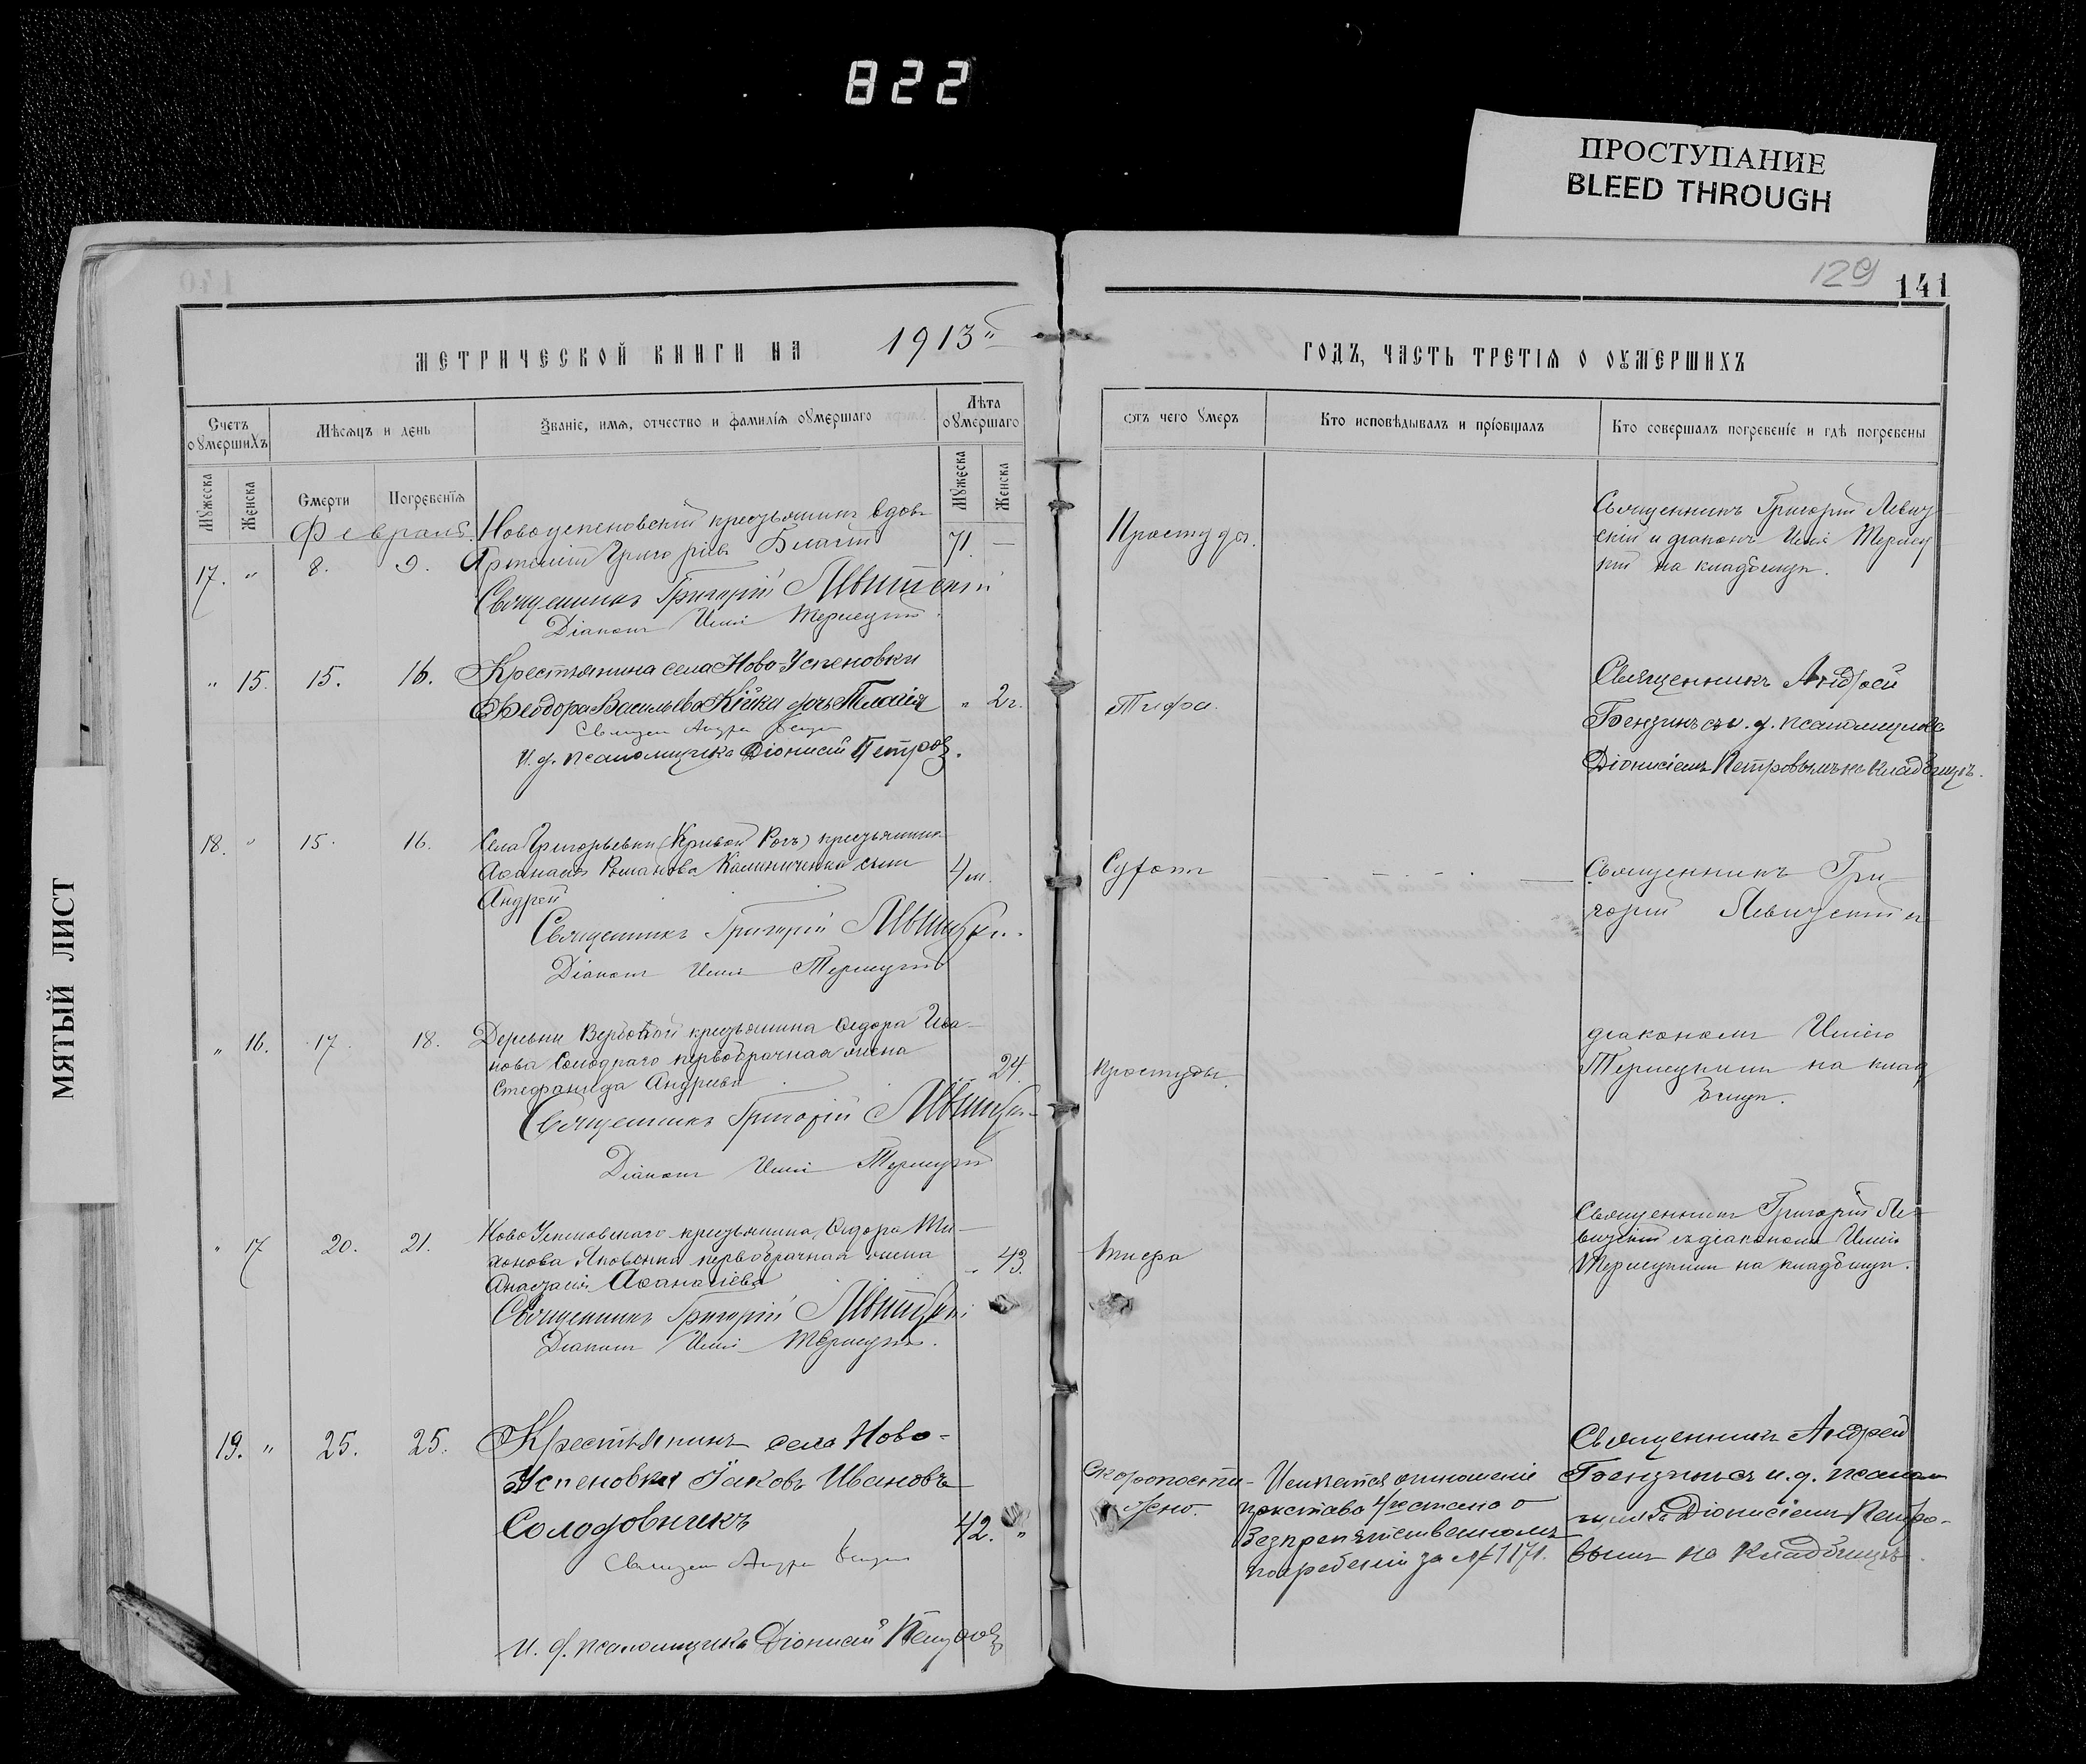 822
ПРОСТУПАНИЕ
BLEED THROUGH
МЯТЫЙ ЛИСТ
129
141
МЕТРИЧЕСКОЙ КНИГИ НА 1913й
ГОДЪ, ЧАСТЬ ТРЕТІѦ О ОУМЕРШИХЪ
Счетъ оумершихъ
Мѣсяцъ и день
Званіе, имѧ, отчество и фамиліѧ оумершаго
Лѣта оумершаго
Мужеска
Женска
Смерти
Погребеніѧ
Мужеска
Женска
Отъ чего умеръ
Кто исповѣдывалъ и пріобщалъ
Кто совершалъ погребеніе и гдѣ погребены
Февраль.
17. " 8. 9.
Новоуспеновскій крестьянинъ вдовъ
Григоріевъ
71. —
Священникъ Григорій Левитскій
Діаконъ Илія
Простуда.
Священникъ Григорій Левит-
скій и діаконъ Илія
на кладбищѣ.
" 15. 15. 16.
Крестьянина села Ново-Успеновки
Ѳеодора Васильева дочь Пелагія
" 2г.
Священ Андре
И. д. псаломщика Діонисій Петров.
Тифа.
Священникъ Андрей
съ и. д. псаломщика
Діонисіемъ Петровымъ на кладбищѣ.
18. " 15. 16.
Села Григорьевки (Кривой Рогъ) крестьянина
Аѳанасія Романова Калиниченка сынъ
Андрей
4м.
Священникъ Григорій Левитскій
Діаконъ Илія
Священникъ Гри-
горій Левитскій и
" 16. 17. 18.
Деревни Вербовой крестьянина Ѳедора Ива-
нова первобрачная жена
Стефанида Андреева
24.
Священникъ Григорій Левитскій
Діаконъ Илія
простуды.
діакономъ Иліею
на клад
бищѣ.
" 17 20. 21.
Ново Успеновскаго крестьянина Ѳедора Ти-
хонова Яковенки первобрачная жена
Анастасія Аѳанасіева
" 43.
Священникъ Григорій Левитскій
Діаконъ Илія
тифа
Священникъ Григорій Ле-
витскій съ діакономъ Иліею
на кладбищѣ.
19. " 25. 25.
Крестьянинъ села Ново-
Успеновки Іаковъ Ивановъ
Солодовникъ
42. "
Священ Андре
И. д. псаломщика Діонисій Петров
Скоропости-
жно.
отношеніе
пристава 4го стана о
безпрепятственномъ
погребеніи за № 1171.
Священникъ Андрей
съ и. д. псалом
щика Діонисіемъ Петро-
вымъ на кладбищѣ.